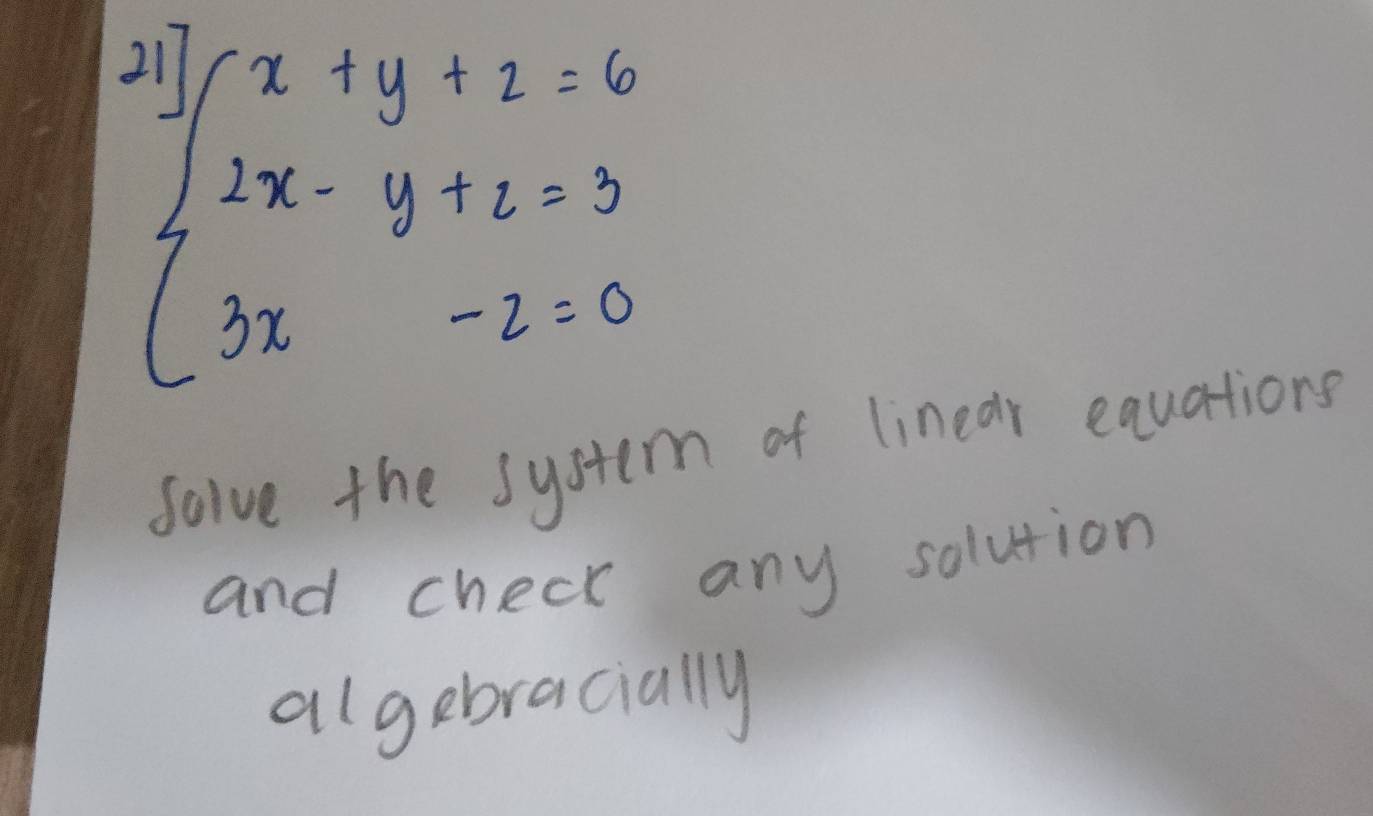 21] x + y + z = 6
2x - y + z = 3
3x - z = 0
solve the system of linear equations
and check any solution
algebracially